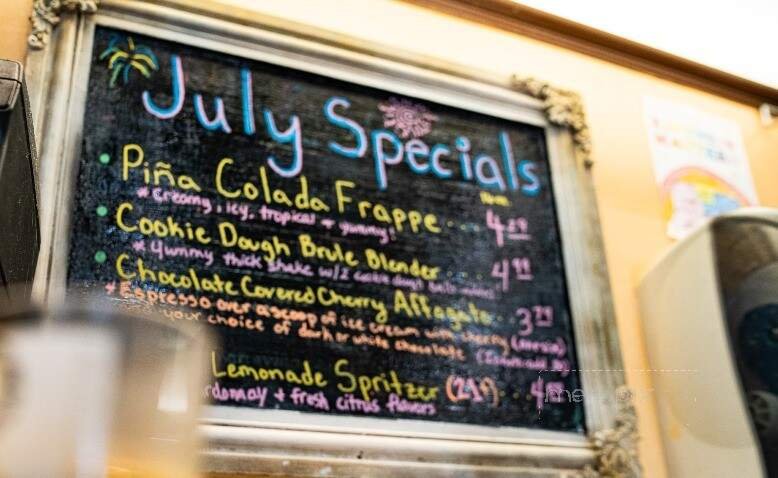 July Specials
• Piña Colada Frappe ... 4.29
* Creamy, icy, tropical + yummy!
• Cookie Dough Brule Blender ... 4.99
* yummy thick shake w/2 cookie dough balls
• Chocolate Covered Cherry Affagato .. 3.79
* Espresso over a scoop of ice cream with cherry
your choice of dark or white chocolate
Lemonade Spritzer (21+) ... 4
rdonnay + fresh citrus flavors